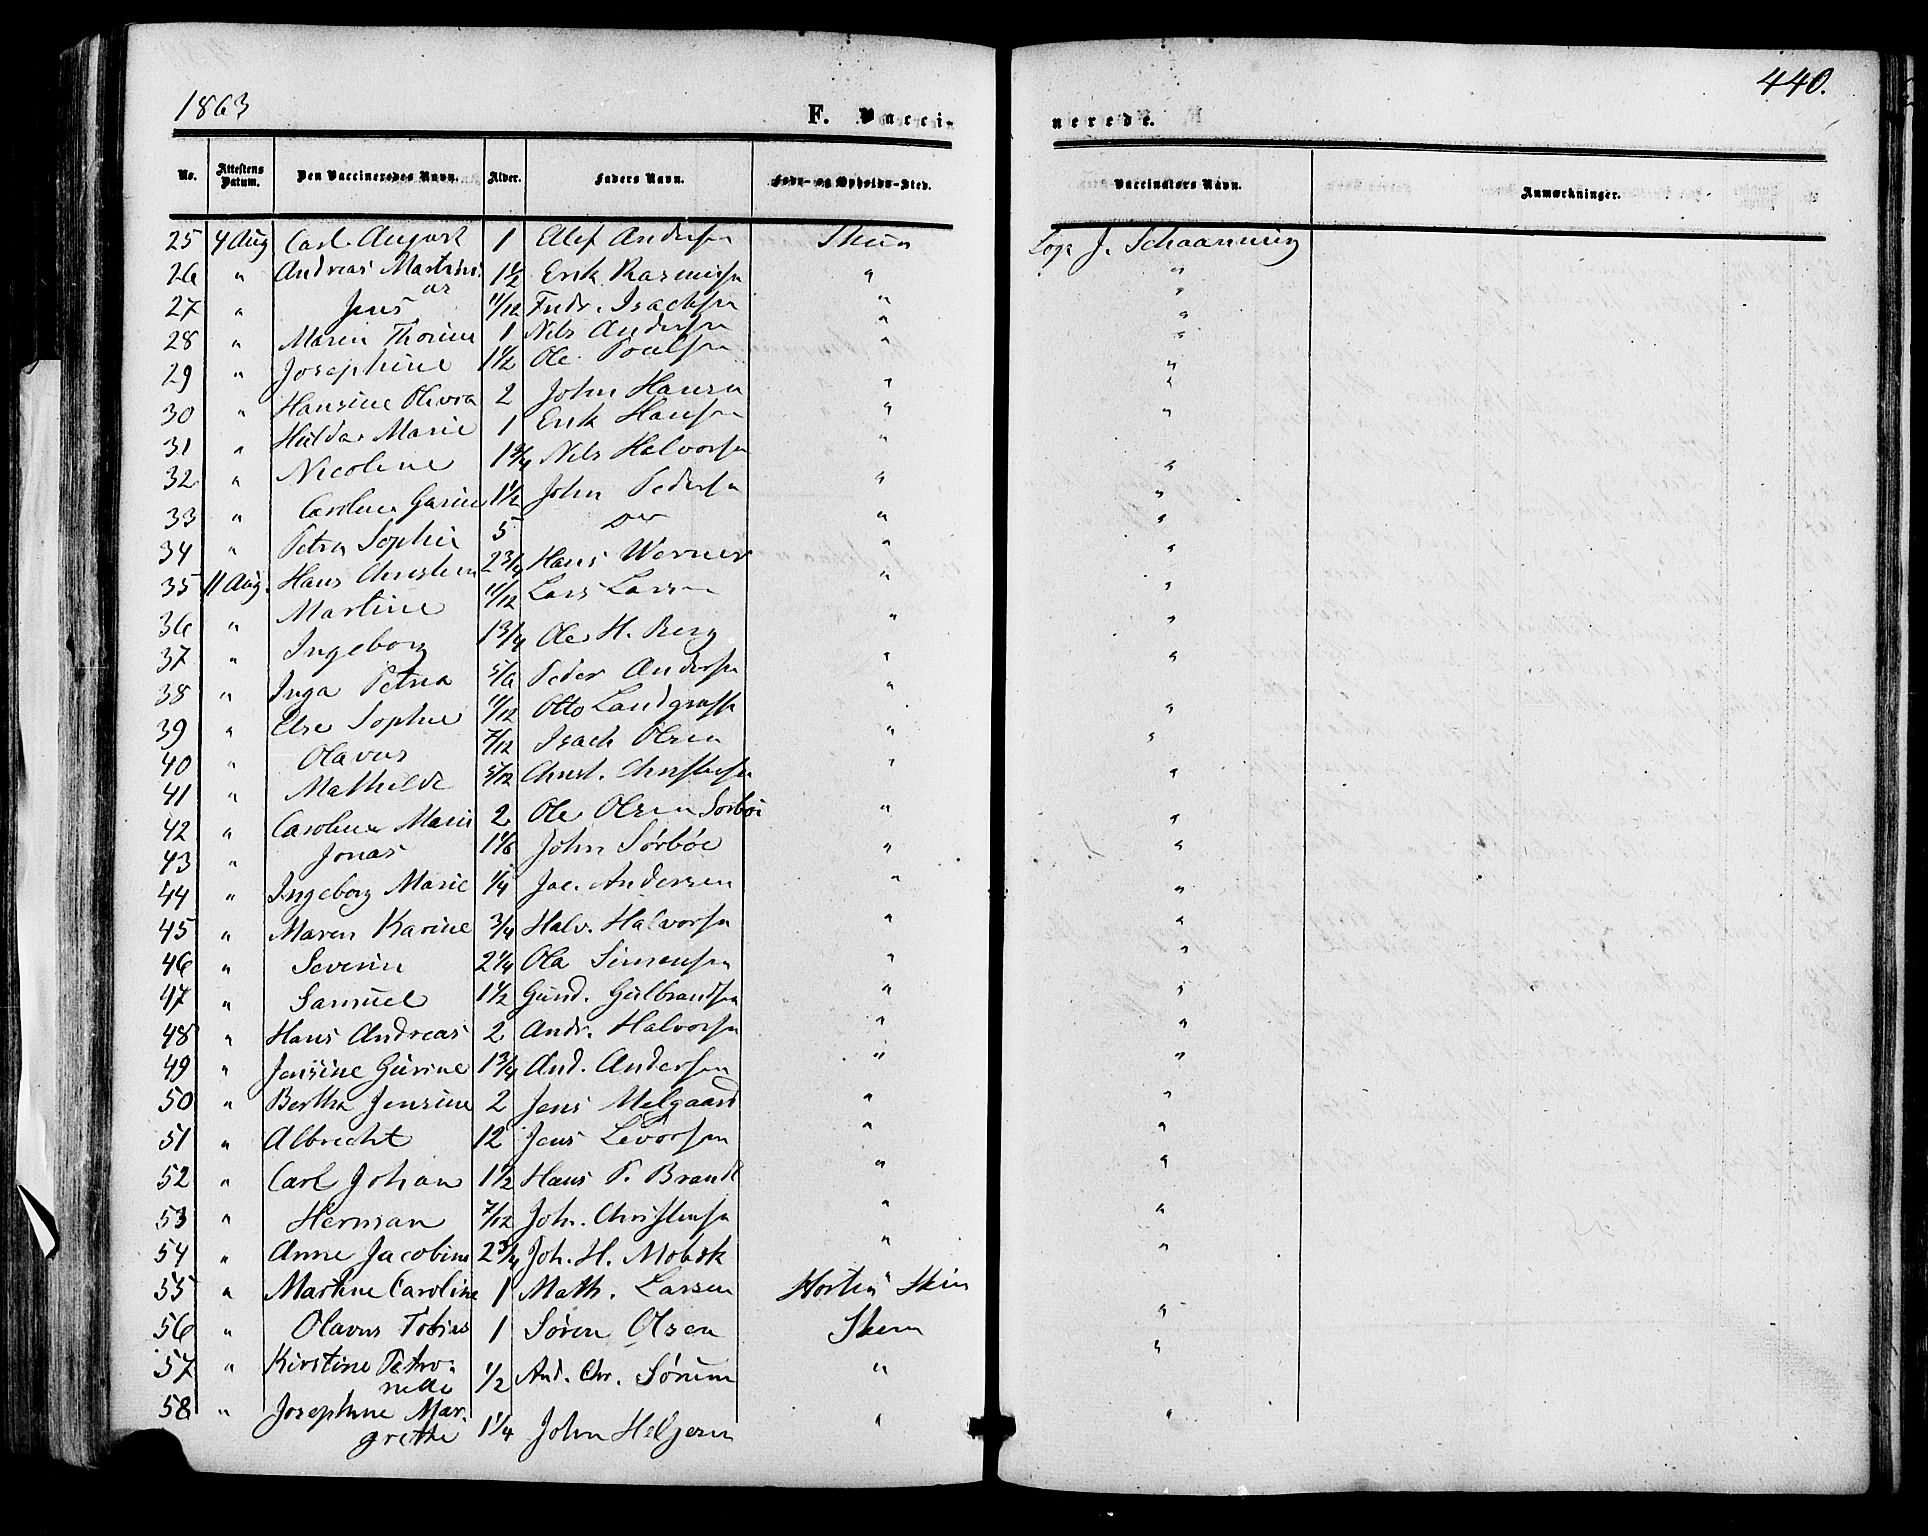 1863
440.
F. Vacci-
nerede.
No. Attestens Datum. Den Vaccineredes Navn. Alder. Faders Navn. Føde- og Opholds-Sted. Vaccinators Navn. Anmærkninger.
25 4 Aug Carl August 1 Andersen Skien J. Schaanning
26 " Andreas Martinius 1 1/2 Erik Rasmussen " "
27 " Jens 11/12 Fredr. Isachsen " "
28 " Maren Thorine 1 Nils Andersen " "
29 " Josephine 1 1/2 Ole Poulsen " "
30 " Hansine Olivia 2 John Hansen " "
31 " Hulda Marie 1 Erik Hansen " "
32 " Nicoline 1 3/4 Nils Halvorsen " "
33 " Caroline Gurine 1 1/2 John Pedersen " "
34 " Petra Sophie 5 " "
35 11 Aug. Hans Christian 2 3/4 Hans Werner " "
36 " Martine 11/12 Lars Larsen " "
37 " Ingeborg 1 3/4 Ole H. Berg " "
38 " Inga Petrea 5/6 Peder Andersen " "
39 " Else Sophie 11/12 Otto Landgraff " "
40 " Olavus 7/12 Isach Olsen " "
41 " Mathilde 5/12 Christ. Christensen " "
42 " Caroline Marie 2 Ole Olsen Sørbøe " "
43 " Jonas 1 1/6 John Sørbøe " "
44 " Ingeborg Marie 1/4 Jac. Andersen " "
45 " Maren Karine 3/4 Halv. Halvorsen " "
46 " Severin 2 1/4 Ola Simensen " "
47 " Samuel 1 1/2 Gund. Gulbrandsen " "
48 " Hans Andreas 2 Andr. Halvorsen " "
49 " Jensine Gurine 1 3/4 And. Andersen " "
50 " Bertha Jensine 2 Jens Melgaard " "
51 " Albrecht 12 Jens Levorsen " "
52 " Carl Johan 1 1/2 Hans P. Brandt " "
53 " Herman 7/12 Joh. Christensen " "
54 " Anne Jacobine 2 3/4 Joh. H. Mobæk " "
55 " Martine Caroline 1 Math. Larsen Skien
56 " Olavus Tobias 1 Søren Olsen Skien "
57 " Kirstine Petro-
nelle 1/2 And. Chr. Sørum " "
58 " Josephine Mar-
grethe 1 1/4 John Helgesen " "